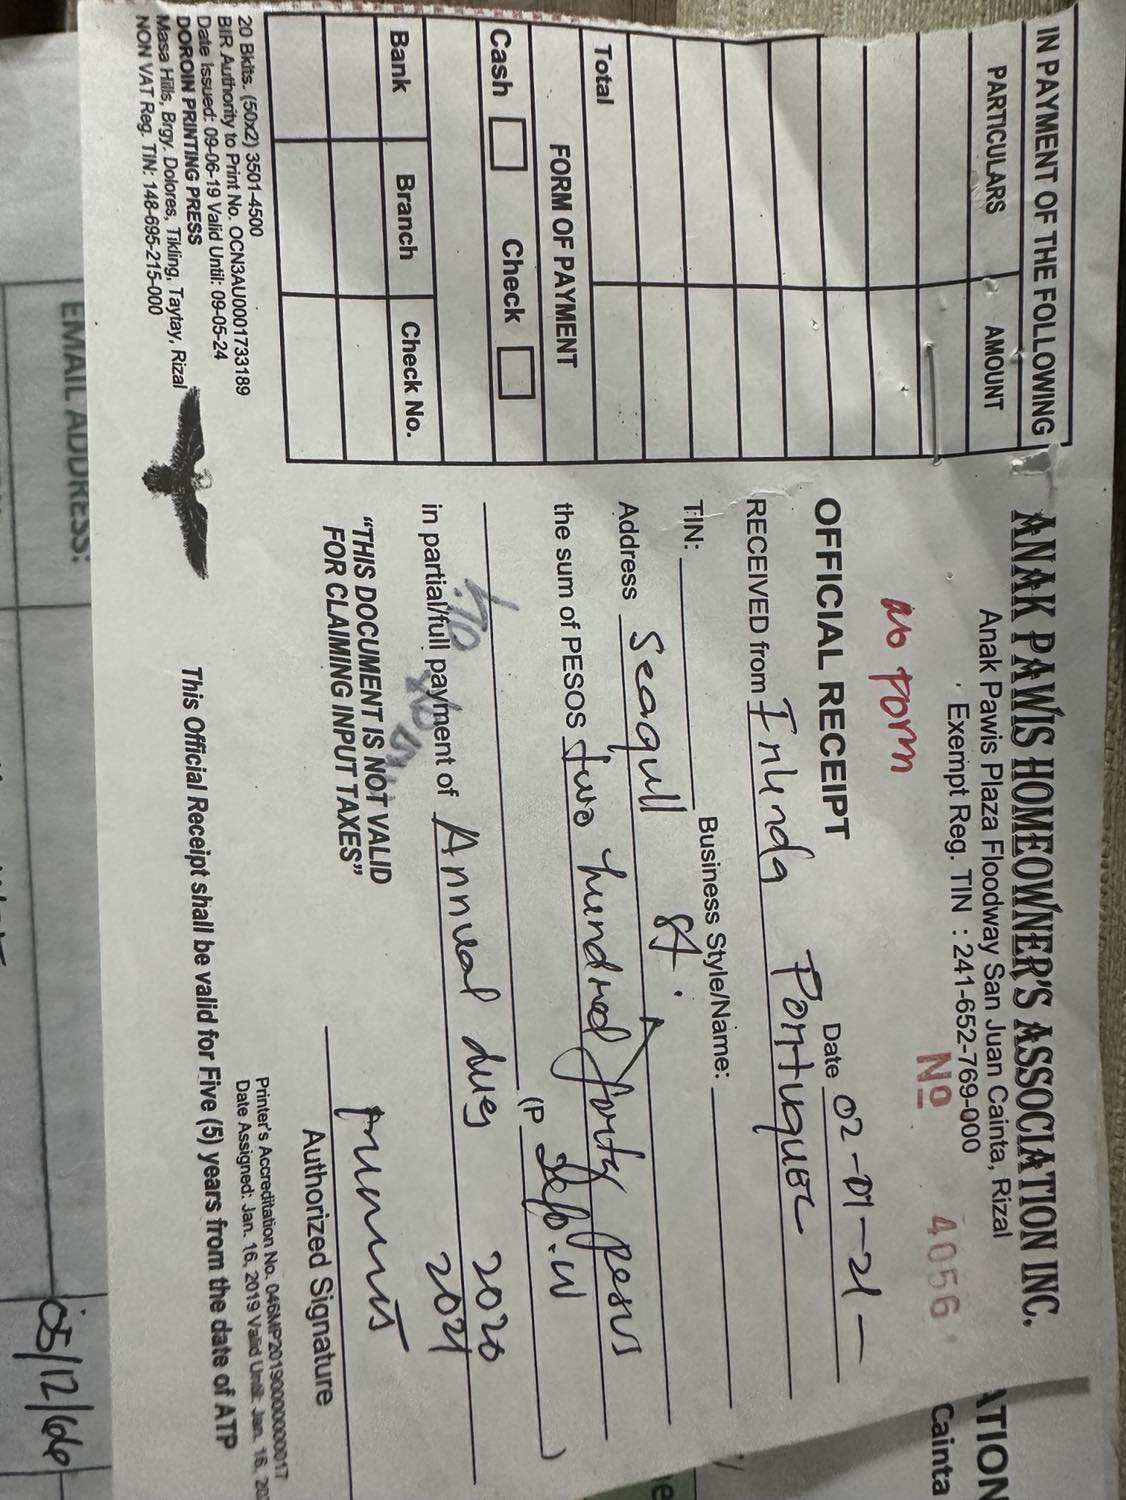 IN PAYMENT OF THE FOLLOWING
PARTICULARS AMOUNT
Total
FORM OF PAYMENT
Cash Check
Bank Branch Check No.
20 Bklts. (50x2) 3501-4500
BIR Authority to Print No. OCN3AU0001733189
Date Issued: 09-06-19 Valid Until: 09-05-24
DOROIN PRINTING PRESS
Masa Hills, Brgy. Dolores, Tikling, Taytay, Rizal
NON VAT Reg. TIN: 148-695-215-000
ANAK PAWIS HOMEOWNER'S ASSOCIATION INC.
Anak Pawis Plaza Floodway San Juan Cainta, Rizal
Exempt Reg. TIN : 241-652-769-000
No 4056
no form
OFFICIAL RECEIPT
Date 02-01-21
RECEIVED from Portuguez
TIN: Business Style/Name:
Address Seagull St.
the sum of PESOS two hundred forty pesos
(P )
in partial/full payment of Annual dues 2020
2021
"THIS DOCUMENT IS NOT VALID
FOR CLAIMING INPUT TAXES"
Authorized Signature
Printer's Accreditation No. 046MP20190000000017
Date Assigned: Jan. 16, 2019 Valid Until: Jan. 16,
This Official Receipt shall be valid for Five (5) years from the date of ATP
ATION
Cainta
EMAIL ADDRESS:
05/12/66